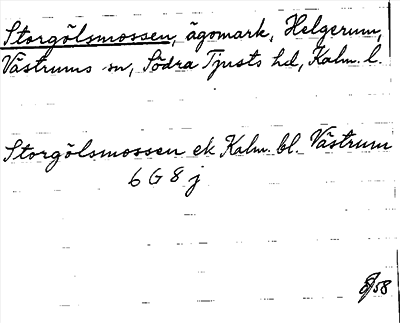 Storgölsmossen, ägomark, Helgerum,
Västrums sn, Södra Tjusts hd, Kalm. l.
Storgölsmossen ek Kalm. bl. Västrum
6 G 8 j